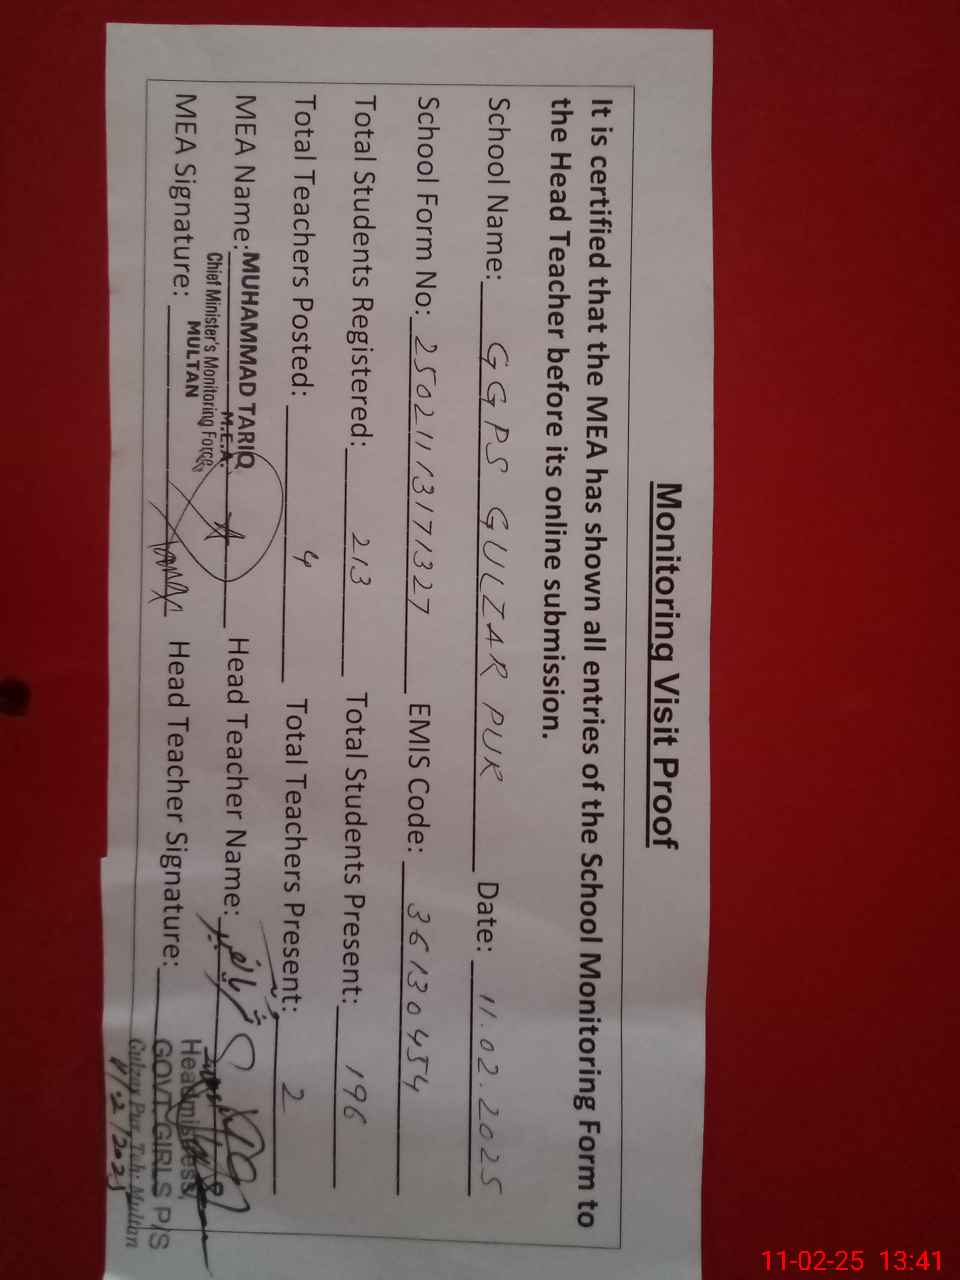 Monitoring Visit Proof
It is certified that the MEA has shown all entries of the School Monitoring Form to
the Head Teacher before its online submission.
School Name: GGPS GULZAR PUR Date: 11.02.2025
School Form No: 25021113171327 EMIS Code: 36130454
Total Students Registered: 213 Total Students Present: 196
Total Teachers Posted: 4 Total Teachers Present: 2
MEA Name: MUHAMMAD TARIQ Head Teacher Name:
M.E.A.
Chief Minister's Monitoring Force
MULTAN
MEA Signature: Head Teacher Signature:
Headmistress
GOVT. GIRLS P/S
Gulzar Pur, Teh: Multan
11/2/2025
11-02-25 13:41